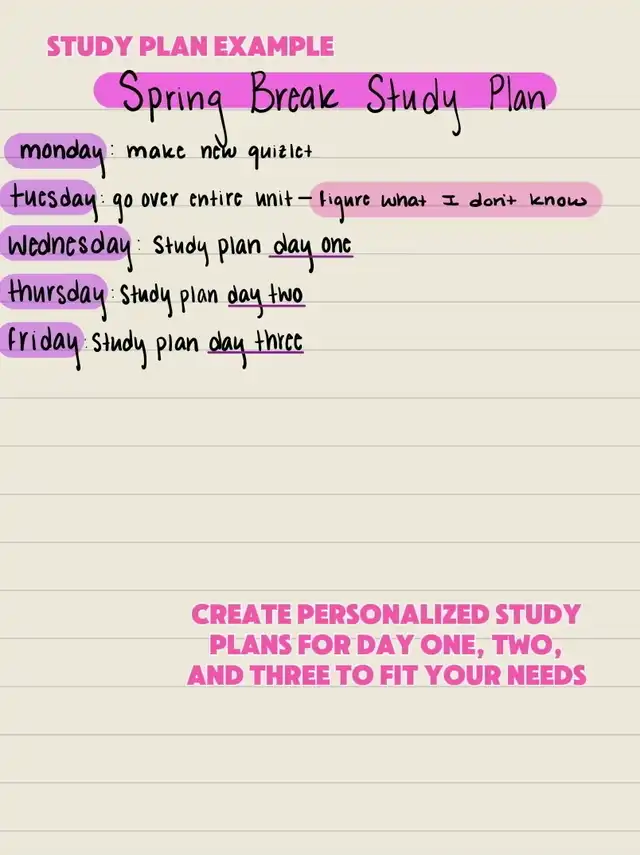 STUDY PLAN EXAMPLE
Spring Break Study Plan
monday: make new quizlet
tuesday: go over entire unit - figure what I don't know
wednesday: Study plan day one
thursday: Study plan day two
friday: Study plan day three
CREATE PERSONALIZED STUDY
PLANS FOR DAY ONE, TWO,
AND THREE TO FIT YOUR NEEDS